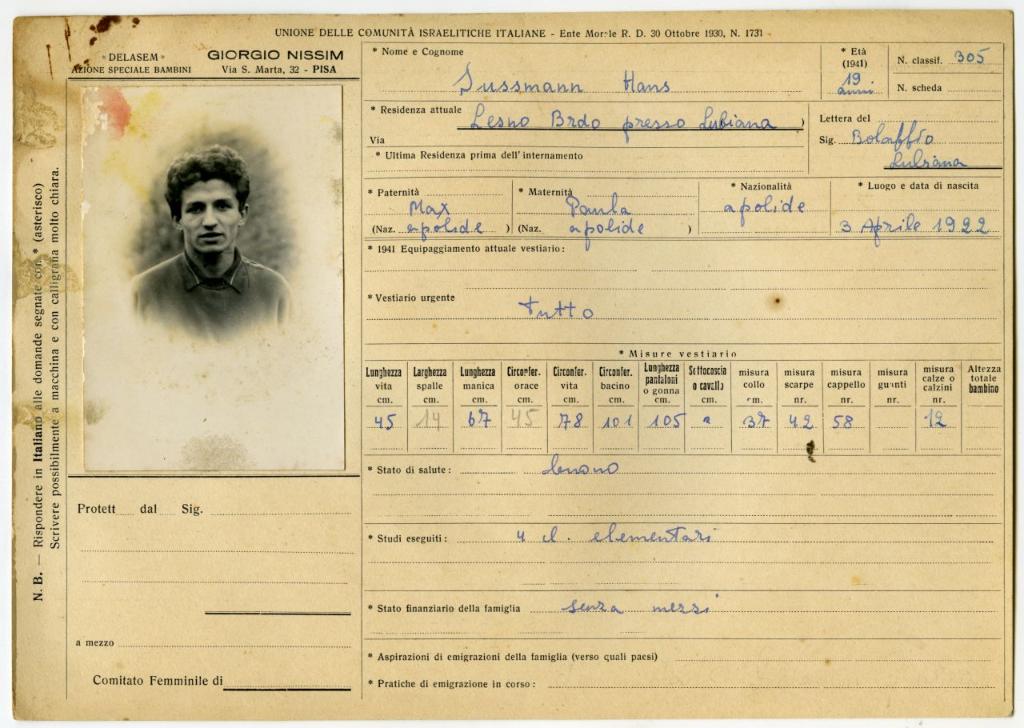 UNIONE DELLE COMUNITÀ ISRAELITICHE ITALIANE - Ente Morale R. D. 30 Ottobre 1930, N. 1731
DELASEM
AZIONE SPECIALE BAMBINI
GIORGIO NISSIM
Via S. Marta, 32 - PISA
N. B. — Rispondere in Italiano alle domande segnate con * (asterisco)
Scrivere possibilmente a macchina e con calligrafia molto chiara.
* Nome e Cognome
Sussmann Hans
* Età
(1941)
19
anni
N. classif. 305
N. scheda
* Residenza attuale
Lesno Brdo presso Lubiana )
Via
Lettera del
Sig. Bolaffio
Lubiana
* Ultima Residenza prima dell'internamento
* Paternità
Max
(Naz. apolide )
* Maternità
Paula
(Naz. apolide )
* Nazionalità
apolide
* Luogo e data di nascita
3 Aprile 1922
* 1941 Equipaggiamento attuale vestiario:
* Vestiario urgente
tutto
* Misure vestiario
Lunghezza vita cm. 45
Larghezza spalle cm. 14
Lunghezza manica cm. 67
Circonfer. orace cm. 45
Circonfer. vita cm. 78
Circonfer. bacino cm. 101
Lunghezza pantaloni o gonna cm. 105
Sottocoscia o cavallo cm.
misura collo cm. 37
misura scarpe nr. 42
misura cappello nr. 58
misura guanti nr.
misura calze o calzini nr. 12
Altezza totale bambino
* Stato di salute: buono
* Studi eseguiti: 4 cl. elementari
* Stato finanziario della famiglia senza mezzi
* Aspirazioni di emigrazioni della famiglia (verso quali paesi)
* Pratiche di emigrazione in corso:
Protett dal Sig.
a mezzo
Comitato Femminile di